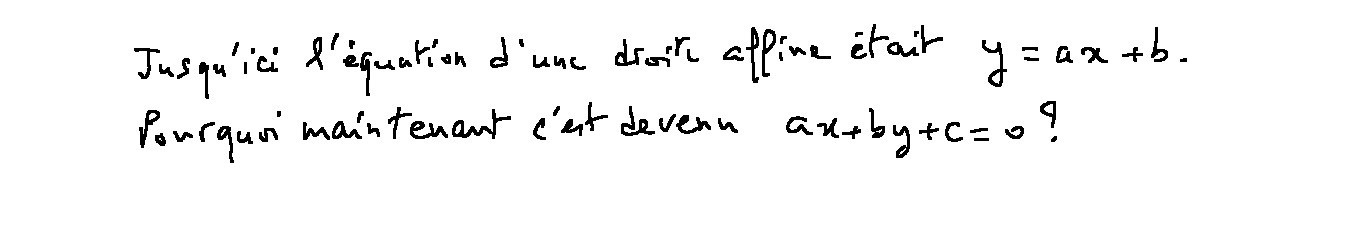 Jusqu'ici l'équation d'une droite affine était y = ax + b.
Pourquoi maintenant c'est devenu ax+by+c=0?